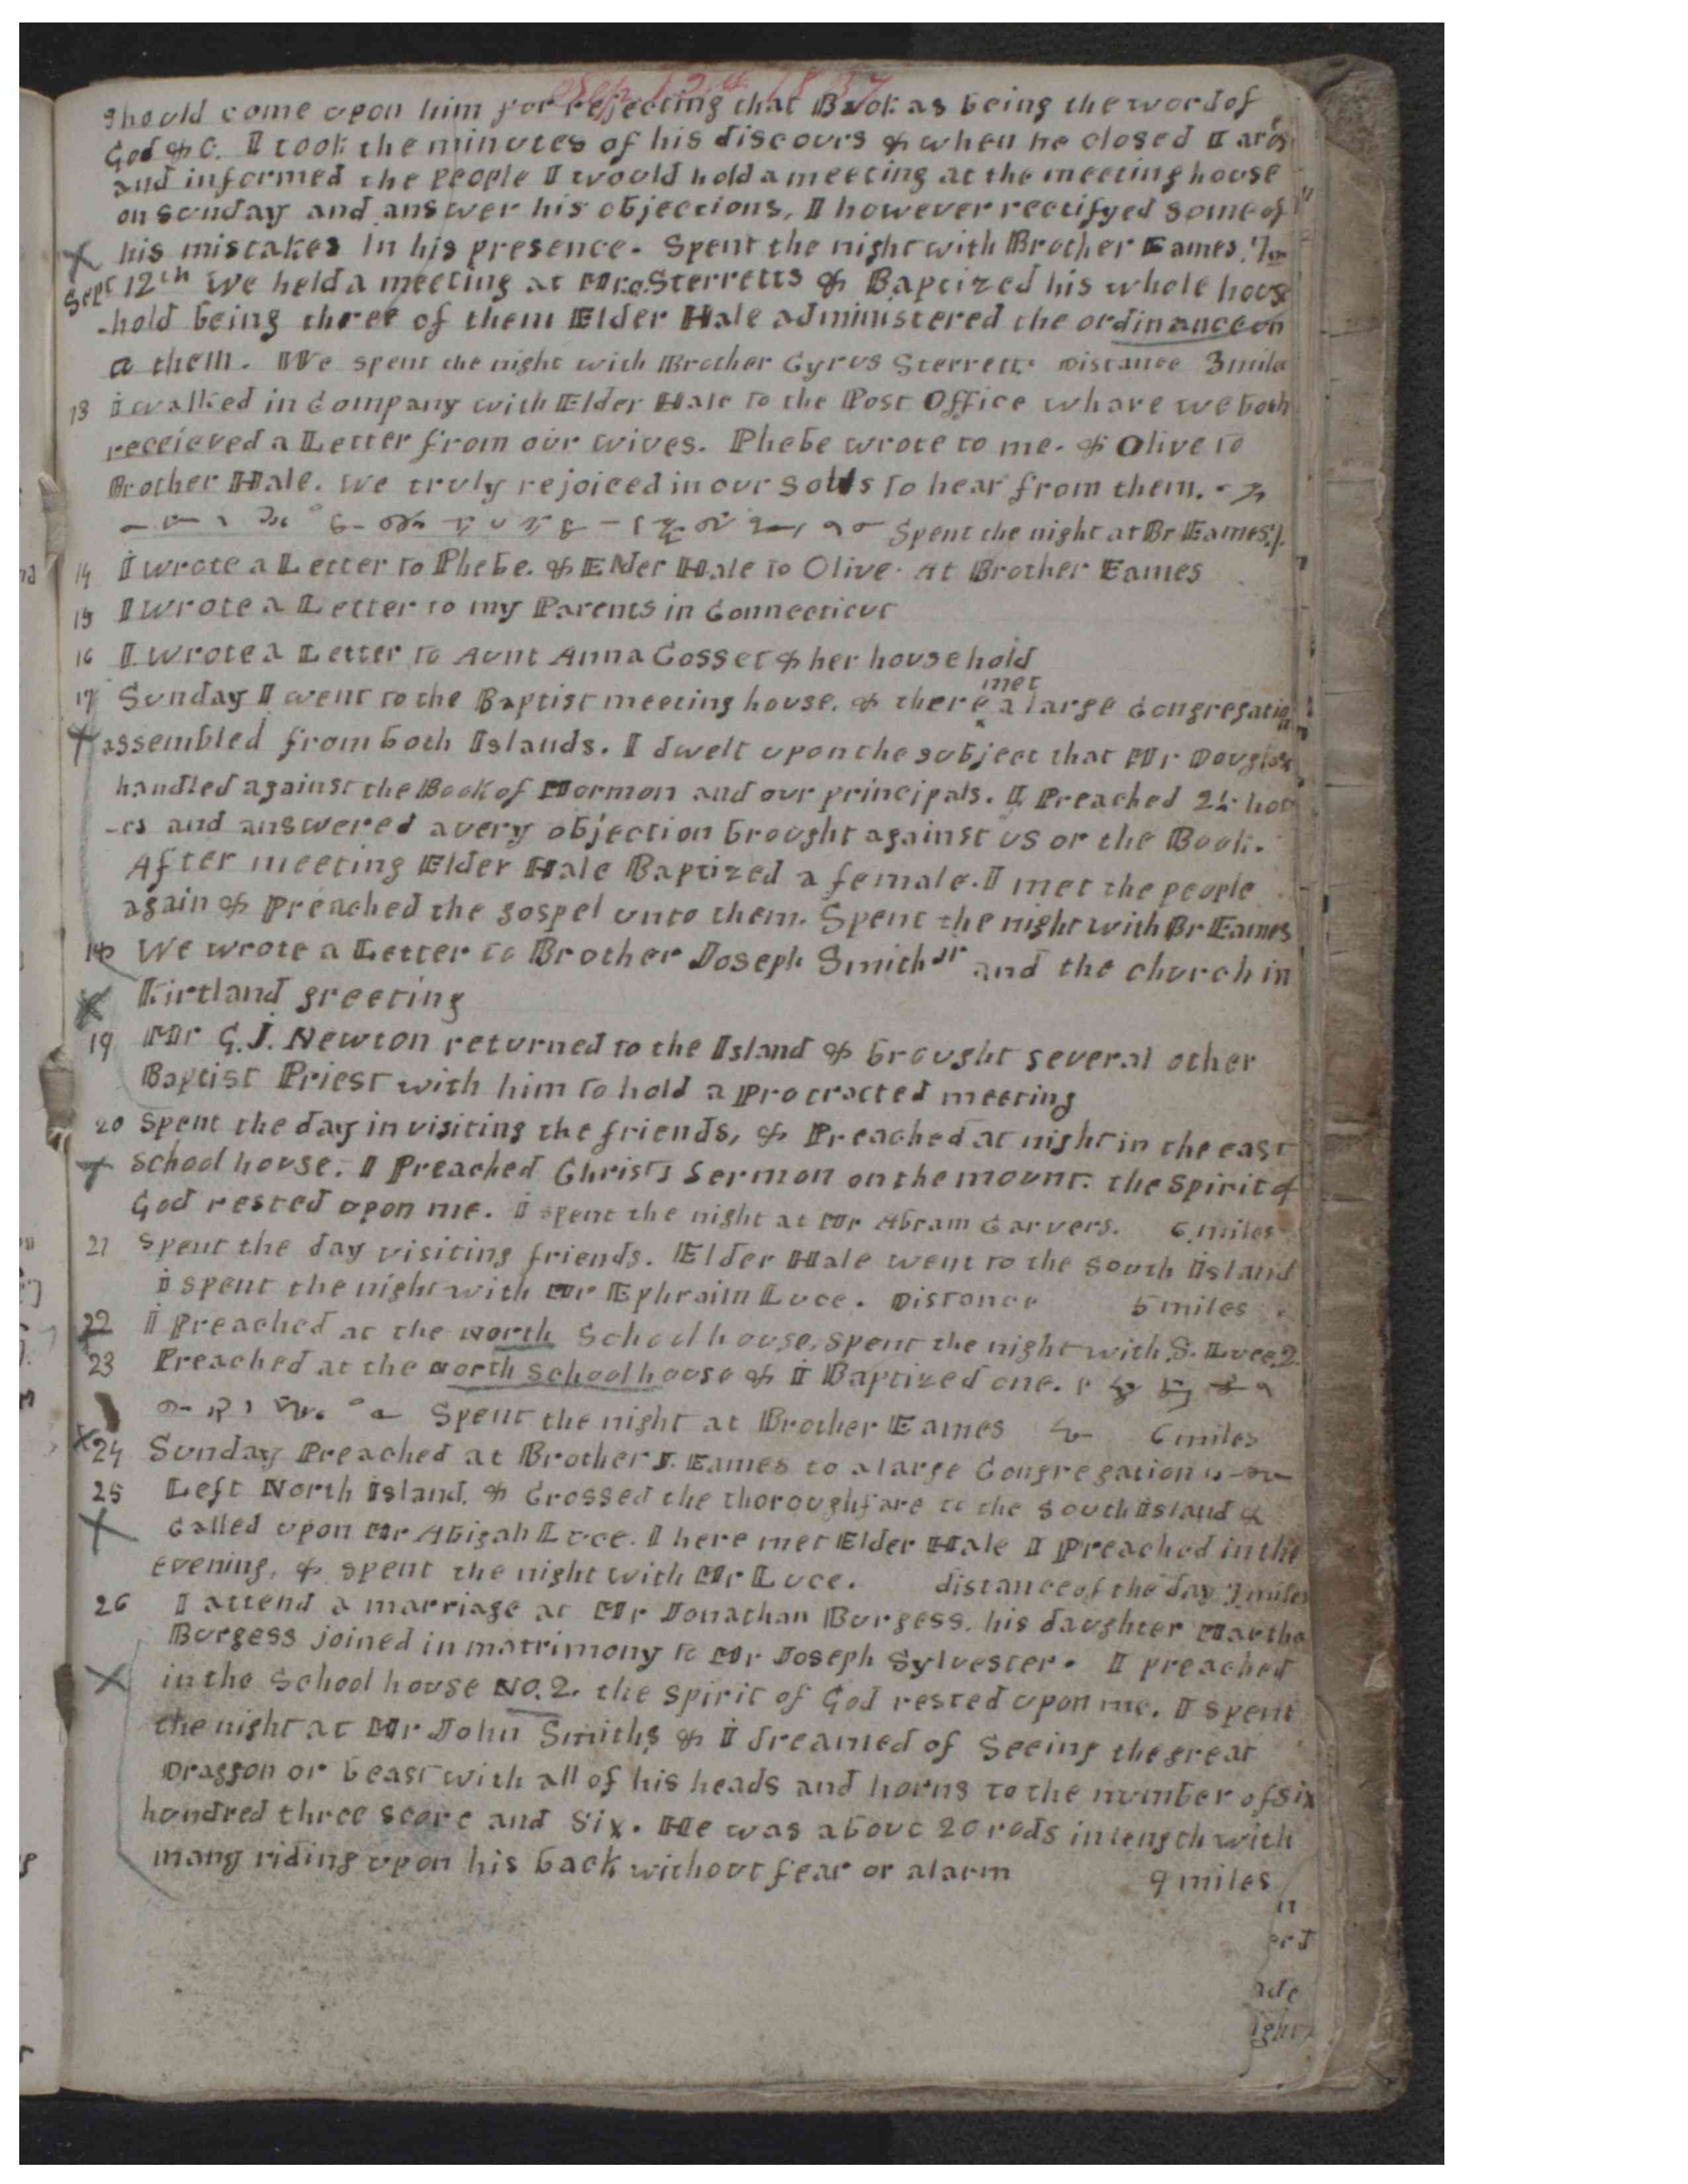 Sep 12th 1837
should come upon him for rejecting that Book as being the word of
God &c. I took the minutes of his discours & when he closed I aros
and informed the people I would hold a meeting at the meeting house
on sunday and answer his objections, I however rectifyed some of
his mistakes in his presence. Spent the night with Brother Eames.
Sept 12th We held a meeting at Sterretts & Baptized his whole hous
-hold being three of them Elder Hale administered the ordinance on
a them. We spent the night with Brother Cyrus Sterrett. Distance 3 mile
13 i walked in Company with Elder Hale to the Post Office whare we both
receieved a Letter from our wives. Phebe wrote to me. & Olive to
Brother Hale. We truly rejoiced in our souls to hear from them.
Spent the night at Br Eames.
14 I wrote a Letter to Phebe. & Elder Hale to Olive. At Brother Eames
15 I wrote a Letter to my Parents in Connecticut
16 I wrote a Letter to Aunt Anna Cosset & her household
met
17 Sunday I went to the Baptist meeting house. & there a large Congregation
assembled from both Islands. I dwelt upon the subject that Mr Douglass
handled against the Book of Mormon and our principals. I Preached 2½ hou
-rs and answered avery objection brought against us or the Book.
After meeting Elder Hale Baptized a female. I met the people
again & preached the gospel unto them. Spent the night with Br Eames
18 We wrote a Letter to Brother Joseph Smith Jr and the church in
Kirtland greeting
19 Mr G. J. Newton returned to the Island & brought several other
Baptist Priest with him to hold a Protracted meeting
20 spent the day in visiting the friends, & Preached at night in the east
school house. I Preached Christs Sermon on the mount. the spirit of
God rested upon me. I spent the night at Mr Abram Carvers. 6 miles
21 spent the day visiting friends. Elder Hale went to the south Island
i spent the night with Mr Ephraim Luce. Distance 5 miles
22 I preached at the North School house, spent the night with S. Luce. 2.
23 Preached at the North school house & I Baptized one.
Spent the night at Brother Eames 6 miles
24 Sunday Preached at Brother J. Eames to a large Congregation
25 Left North Island. & Crossed the thoroughfare to the South island &
Called upon Mr Abigah Luce. I here met Elder Hale I Preached in the
evening, & spent the night with Mr Luce. distance of the day miles
26 I attend a marriage at Mr Jonathan Burgess. his daughter Martha
Burgess joined in matrimony to Mr Joseph Sylvester. I preached
in the School house No. 2. the spirit of God rested upon me. I spent
the night at Mr John Smiths & I dreamed of Seeing the great
Draggon or beast with all of his heads and horns to the number of six
hundred three score and six. He was about 20 rods in length with
many riding upon his back without fear or alarm 9 miles